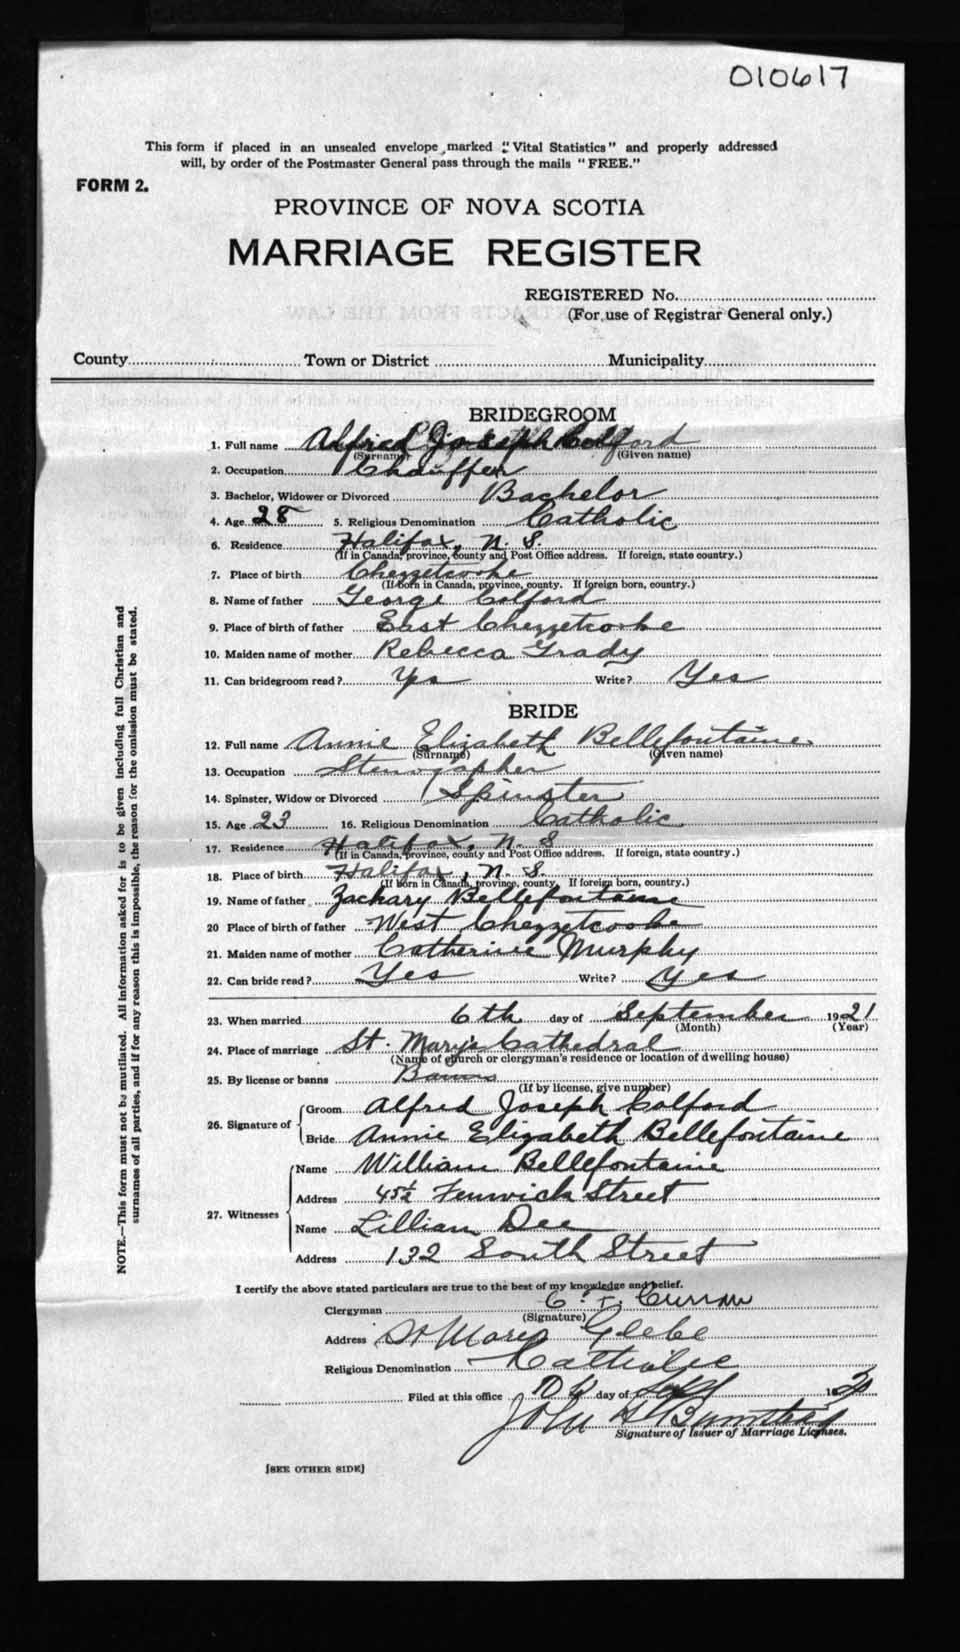 010617
This form if placed in an unsealed envelope marked "Vital Statistics" and properly addressed
will, by order of the Postmaster General pass through the mails "FREE."
FORM 2.
PROVINCE OF NOVA SCOTIA
MARRIAGE REGISTER
REGISTERED No.
(For use of Registrar General only.)
County Town or District Municipality
BRIDEGROOM
1. Full name Alfred Joseph Colford
(Surname) (Given name)
2. Occupation Chauffer
3. Bachelor, Widower or Divorced Bachelor
4. Age 28 5. Religious Denomination Catholic
6. Residence Halifax, N. S.
(If in Canada, province, county and Post Office address. If foreign, state country.)
7. Place of birth Chezzetcooke
(If born in Canada, province, county. If foreign born, country.)
8. Name of father George Colford
9. Place of birth of father East Chezzetcooke
10. Maiden name of mother Rebecca Grady
11. Can bridegroom read? Yes Write? Yes
BRIDE
12. Full name Annie Elizabeth Bellefontaine
(Surname) (Given name)
13. Occupation Stenographer
14. Spinster, Widow or Divorced Spinster
15. Age 23 16. Religious Denomination Catholic
17. Residence Halifax, N. S
(If in Canada, province, county and Post Office address. If foreign, state country.)
18. Place of birth Halifax, N. S.
(If born in Canada, province, county. If foreign born, country.)
19. Name of father Zachary Bellefontaine
20 Place of birth of father West Chezzetcooke
21. Maiden name of mother Catherine Murphy
22. Can bride read? Yes Write? Yes
23. When married 6th day of September 1921
(Month) (Year)
24. Place of marriage St. Mary's Cathedral
(Name of church or clergyman's residence or location of dwelling house)
25. By license or banns Banns
(If by license, give number)
26. Signature of Groom Alfred Joseph Colford
Bride Annie Elizabeth Bellefontaine
27. Witnesses Name William Bellefontaine
Address 45½ Fenwick Street
Name Lillian Dee
Address 132 South Street
I certify the above stated particulars are true to the best of my knowledge and belief.
Clergyman C. F. Curran
(Signature)
Address St Marys Glebe
Religious Denomination Catholic
Filed at this office day of 19
John
Signature of Issuer of Marriage Licenses.
[SEE OTHER SIDE]
NOTE.—This form must not be mutilated. All information asked for is to be given including full Christian and
surnames of all parties, and if for any reason this is impossible, the reason for the omission must be stated.